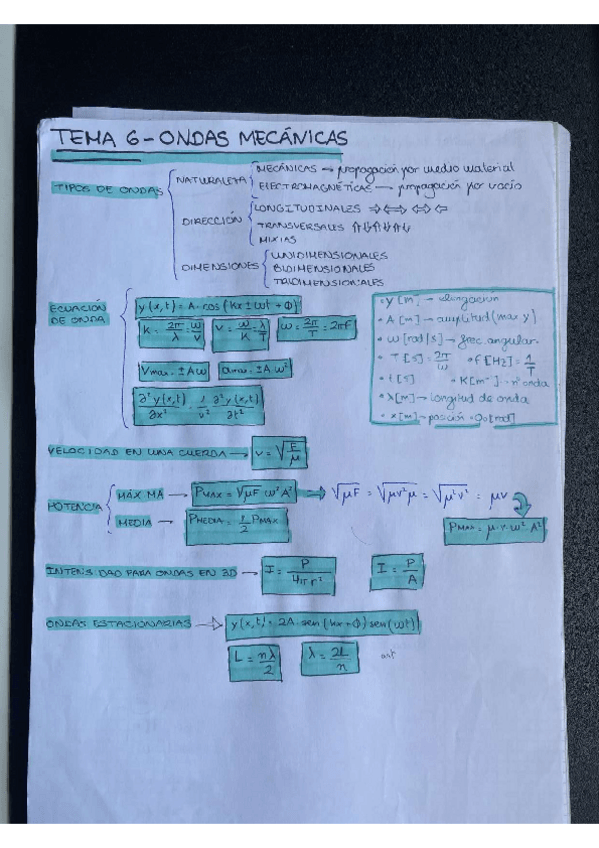 TEMA 6 - ONDAS MECÁNICAS
TIPOS DE ONDAS
NATURALEZA
MECÁNICAS → propagación por medio material
ELECTROMAGNÉTICAS → propagación por vacío
DIRECCIÓN
LONGITUDINALES ⇒⇔⇔⇐
TRANSVERSALES ⇑⇓⇑⇓⇑⇓
MIXTAS
DIMENSIONES
UNIDIMENSIONALES
BIDIMENSIONALES
TRIDIMENSIONALES
ECUACIÓN DE ONDA
y(x,t) = A · cos(kx ± ωt + Φ)
k = 2π/λ = ω/v
v = ω/k = λ/T
ω = 2π/T = 2πf
Vmax = ± Aω
amax = ± Aω²
∂²y(x,t)/∂x² = 1/v² · ∂²y(x,t)/∂t²
• y [m] → elongación
• A [m] → amplitud (max y)
• ω [rad/s] → frec. angular
• T [s] = 2π/ω • f [Hz] = 1/T
• t [s] • K [m⁻¹] → nº onda
• λ [m] → longitud de onda
• x [m] → posición • Φ₀ [rad]
VELOCIDAD EN UNA CUERDA → v = √(F/μ)
POTENCIA
MÁXIMA → PMAX = √μF ω² A² → √μF = √μv²μ = √μ²v² = μv
PMAX = μ · v · ω² A²
MEDIA → PMEDIA = 1/2 PMAX
INTENSIDAD PARA ONDAS EN 3D → I = P/4πr² I = P/A
ONDAS ESTACIONARIAS → y(x,t) = 2A · sen(kx + Φ) sen(ωt)
L = nλ/2 λ = 2L/n